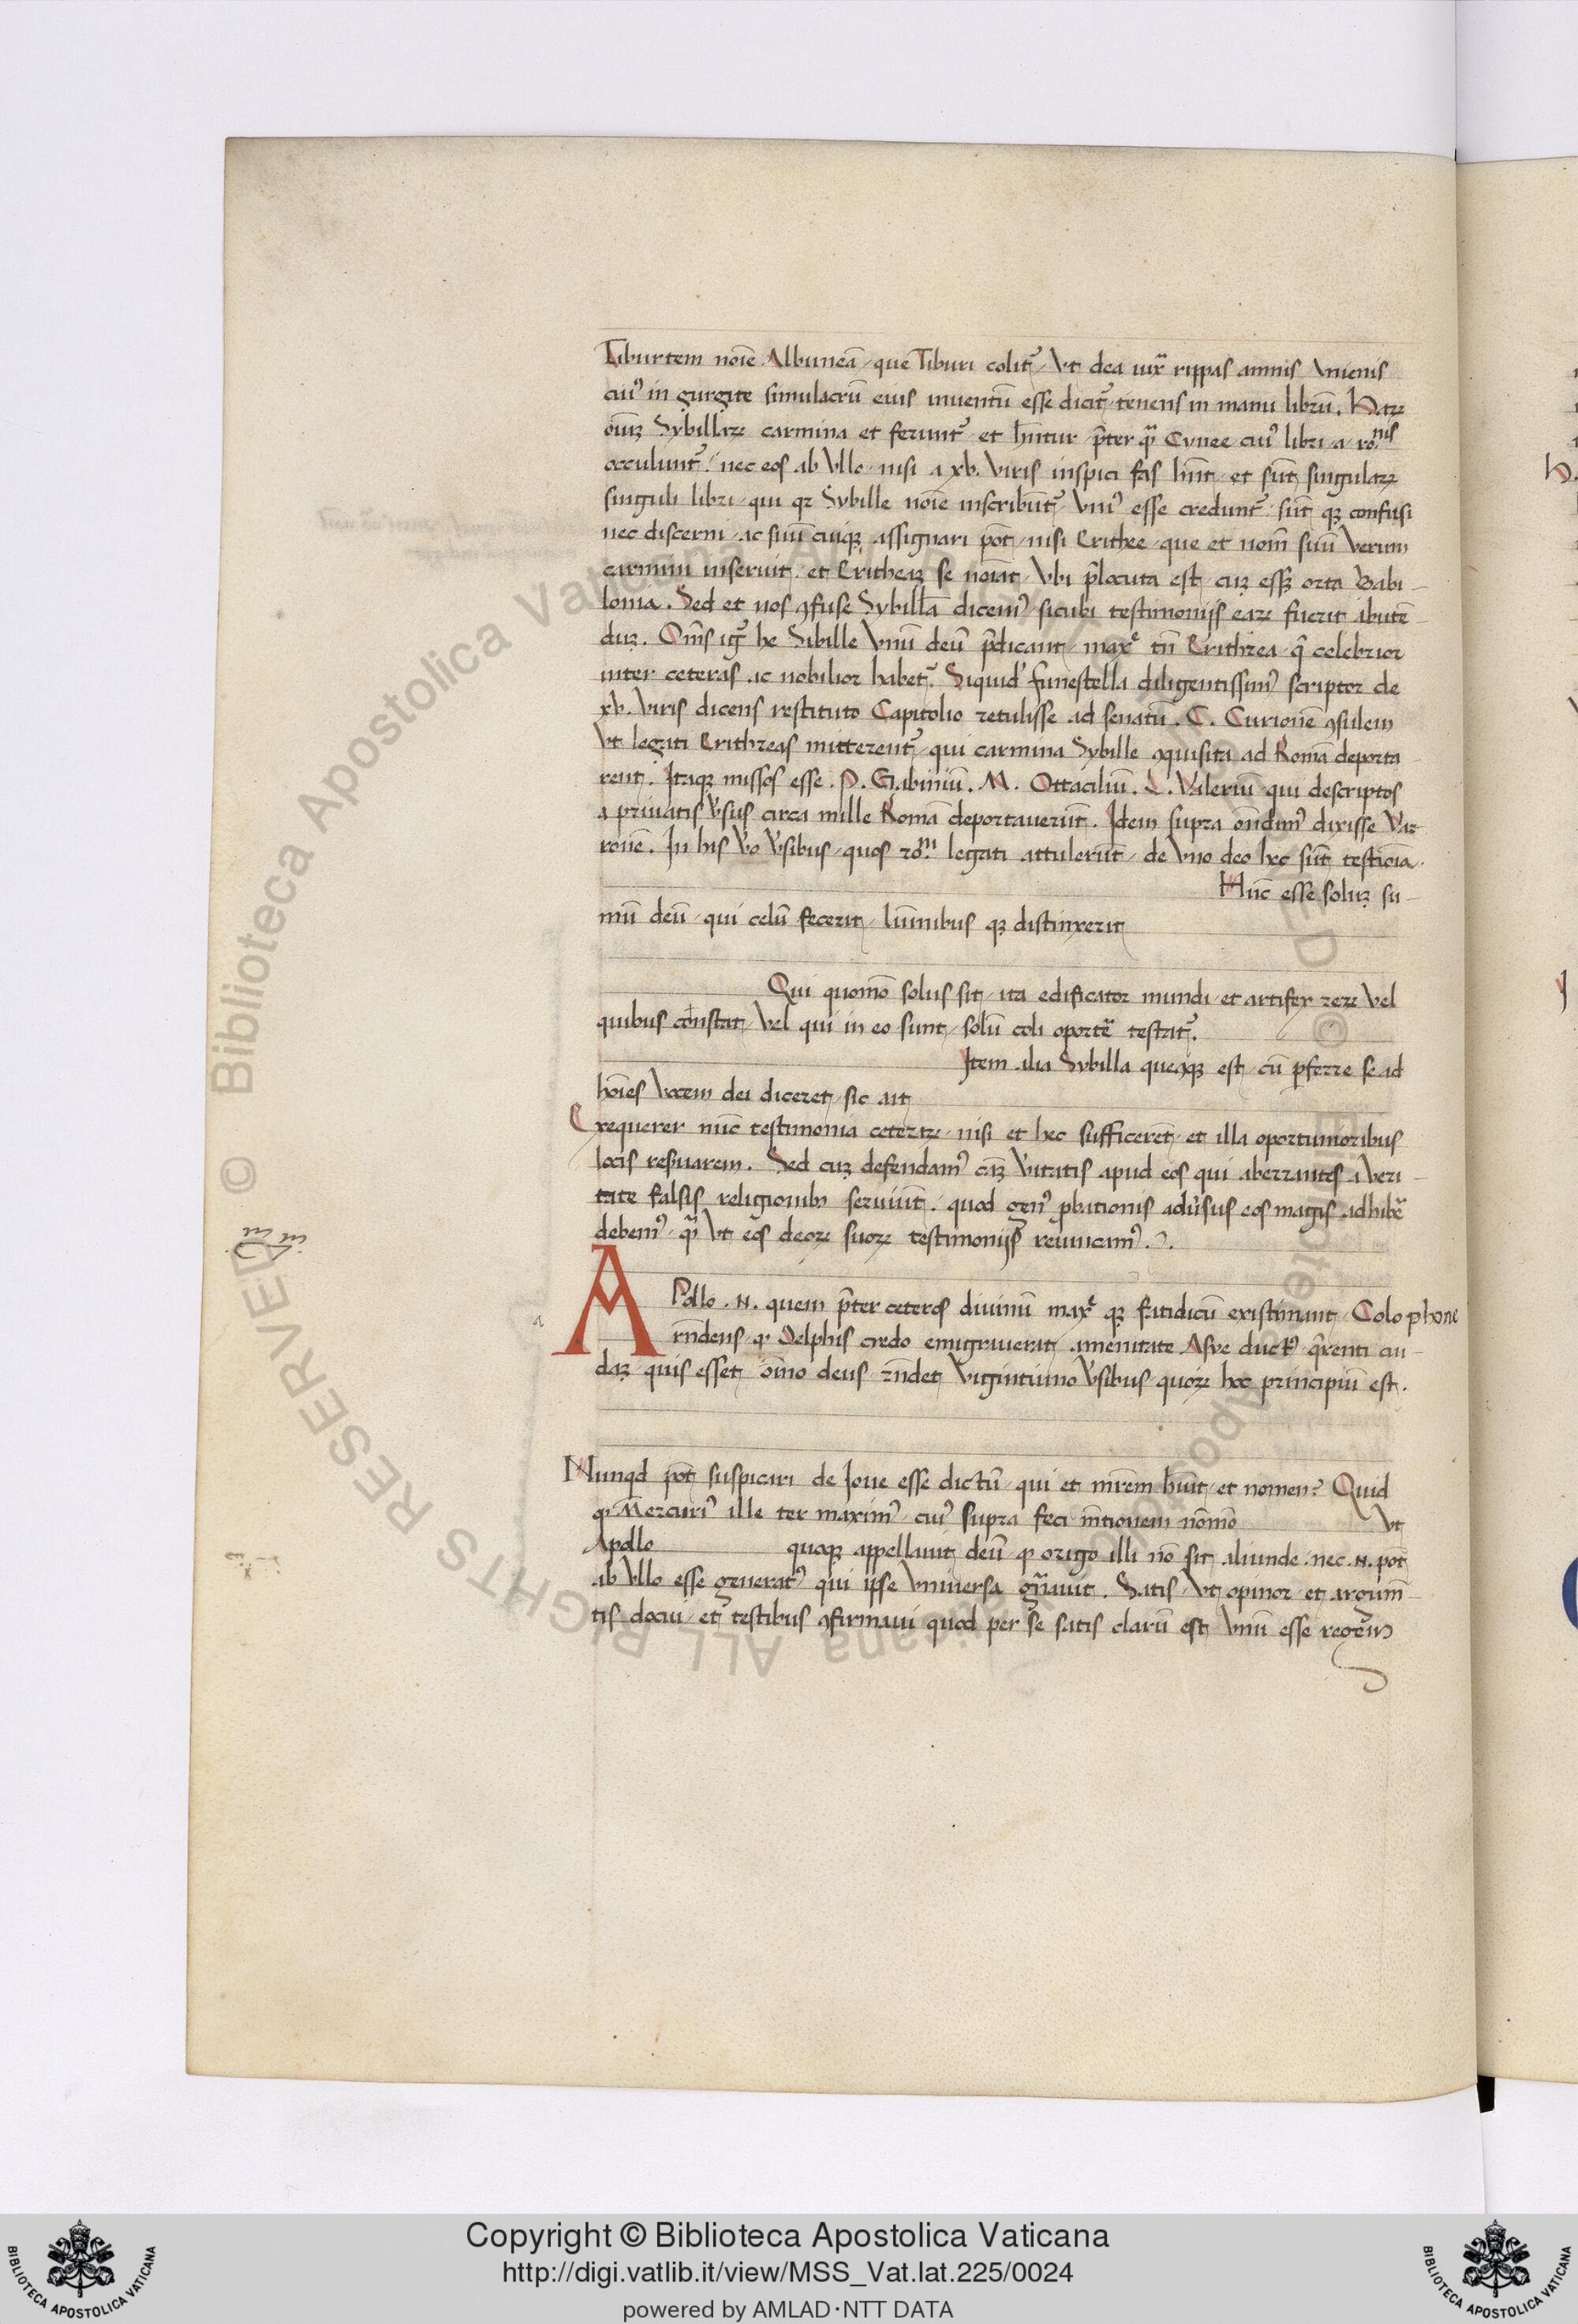 Tiburtem noīe Albuneā que Tiburi colit᷑ vt dea iux̄ rippas amnis Anienis
cuiꝰ in gurgite simulacrū eius inuentū esse dicit᷑ tenens in manu librū. Haꝝ
oīuꝫ Sybillaꝝ carmina et ferunt᷑ et hn̄tur p̄ter qͣ Cynee cuiꝰ libri a ro.nis
occulunt᷑. nec eos ab vllo nisi a xv. viris inspici fas hn̄t et sūt singulaꝝ
singuli libri qui qꝛ Sybille noīe inscribūt᷑ vniꝰ esse credunt᷑ sūt qꝫ confusi
nec discerni ac suū cuiqꝫ assignari pōt nisi Erithee que et nom̄ suū verum
carmini inseruit et Eritheaꝫ se noīat vbi p̄locuta est cuꝫ essꝫ orta Babi-
lonia. Sed et nos ꝯfuse Sybillā dicemꝰ sicubi testimonijs eaꝝ fuerit abutē-
duꝫ. Om̄s ig᷑ he Sibille vnū deū p̄dicant maxͤ tn̄ Erithrea q̄ celebrior
inter ceteras ac nobilior habet᷑. Siquid' funestella diligentissimꝰ scriptor de
xv. viris dicens restituto Capitolio retulisse ad senatū. C. Curionē ꝯsulem
vt legati Erithreas mitterent᷑ qui carmina Sybille ꝯquisita ad Romā deporta-
rent. Itaqꝫ missos esse. P. Gabiniū. M. Ottaciliū. L. Valeriū qui descriptos
a priuatis v̓sus circa mille Romā deportauerūt. Idem supra on̄dimꝰ dixisse Var-
ronē. In his v̓o v̓sibus quos ro.ni legati attulerūt de vno deo hec sūt testīoia.
Hūc esse soluꝫ su-
mū deū qui celū fecerit lūinibus qꝫ distinxerit
Qui quomō solus sit ita edificator mundi et artifex reꝝ vel
quibus constat vel qui in eo sunt solū coli oportē testat᷑.
Item alia Sybilla queqꝫ est cū p̱ferre se ad
hoīes vocem dei diceret sic ait
Exequerer nūc testimonia ceteraꝝ nisi et hec sufficerēt et illa oportunioribus
locis res̓uarem. Sed cuꝫ defendamꝰ cāꝫ v̓itatis apud eos qui aberrantes a veri-
tate falsis religionibꝰ seruiūt. quod genꝰ ꝓbationis adu̓sus eos magis adhibē
debemꝰ qͣ vt eos deoꝝ suoꝝ testimonijs reuincamꝰ.
APollo .N. quem p̄ter ceteros diuinū maxͤ qꝫ fatidicū existimant Colophone
rn̄dens qꝫ Delphis credo emigrauerat amenitate Asye ductꝰ q̄renti cui-
daꝫ quis esset oīno deus rn̄det vigintiuno v̓sibus quoꝝ hoc principiū est.
Nunqd pōt suspicari de Ioue esse dictū qui et mr̄em hūit et nomen? Quid
qꝫ Mercuriꝰ ille ter maximꝰ cuiꝰ supra feci m̄tionem nōmō vt
Apollo quoqꝫ appellauit deū qꝫ origo illi nō sit aliunde nec .N. pōt
ab vllo esse generatꝰ qui ipse vniuersa gn̄auit. Satis vt opinor et argum̄-
tis docui et testibus ꝯfirmaui quod per se satis clarū est vnū esse regem
Copyright © Biblioteca Apostolica Vaticana
http://digi.vatlib.it/view/MSS_Vat.lat.225/0024
powered by AMLAD·NTT DATA
BIBLIOTECA APOSTOLICA VATICANA
BIBLIOTECA APOSTOLICA VATICANA
© Biblioteca Apostolica Vaticana ALL RIGHTS RESERVED